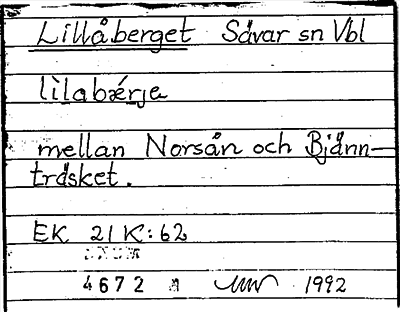 Lillåberget Sävar sn Vbl
lìlabǽrjɐ
mellan Norsån och Bjänn-
träsket.
EK 21 K:62
4672 1992